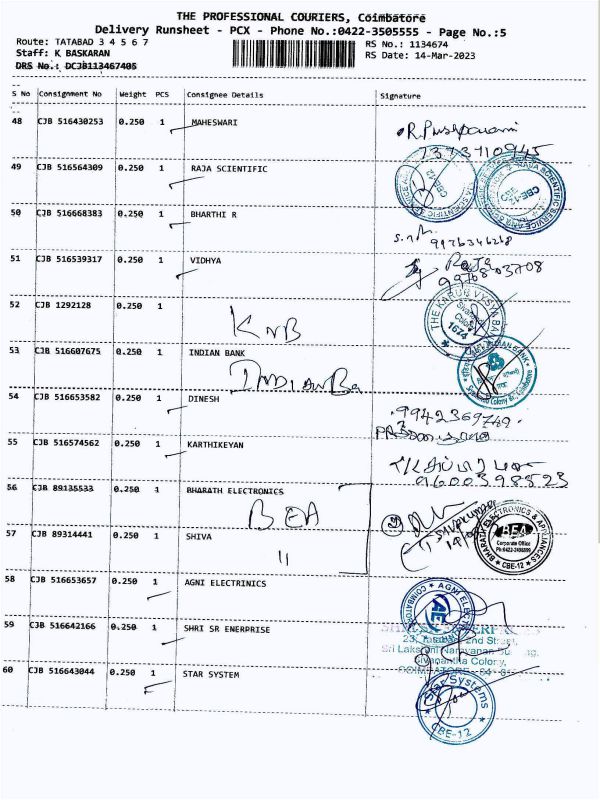 THE PROFESSIONAL COURIERS, Coimbatore
Delivery Runsheet - PCX - Phone No.:0422-3505555 - Page No.:5
Route: TATABAD 3 4 5 6 7
RS No.: 1134674
Staff: K BASKARAN
RS Date: 14-Mar-2023
DRS No.: DCJB113467405
S No Consignment No Weight PCS Consignee Details Signature
48 CJB 516430253 0.250 1 MAHESWARI
7373710945
49 CJB 516564309 0.250 1 RAJA SCIENTIFIC
CBE-12
CBE-12
50 CJB 516668383 0.250 1 BHARTHI R
51 CJB 516539317 0.250 1 VIDHYA
52 CJB 1292128 0.250 1
KVB
THE KARUR VYSYA BA
Colony
1624
53 CJB 516607675 0.250 1 INDIAN BANK
INDIAN Ba
INDIAN BANK
54 CJB 516653582 0.250 1 DINESH
9942369749
55 CJB 516574562 0.250 1 KARTHIKEYAN
9600398523
56 CJB 89135533 0.250 1 BHARATH ELECTRONICS
BEA
BHARATH ELECTRONICS & APPLIANCES
BEA
Corporate Office
CBE-12
57 CJB 89314441 0.250 1 SHIVA
11
58 CJB 516653657 0.250 1 AGNI ELECTRINICS
59 CJB 516642166 0.250 1 SHRI SR ENERPRISE
23, Tatabad 2nd Street,
Sri Lakshmi Narayanan
Sivanantha Colony,
COIMBATORE
60 CJB 516643044 0.250 1 STAR SYSTEM
Star Systems
CBE-12